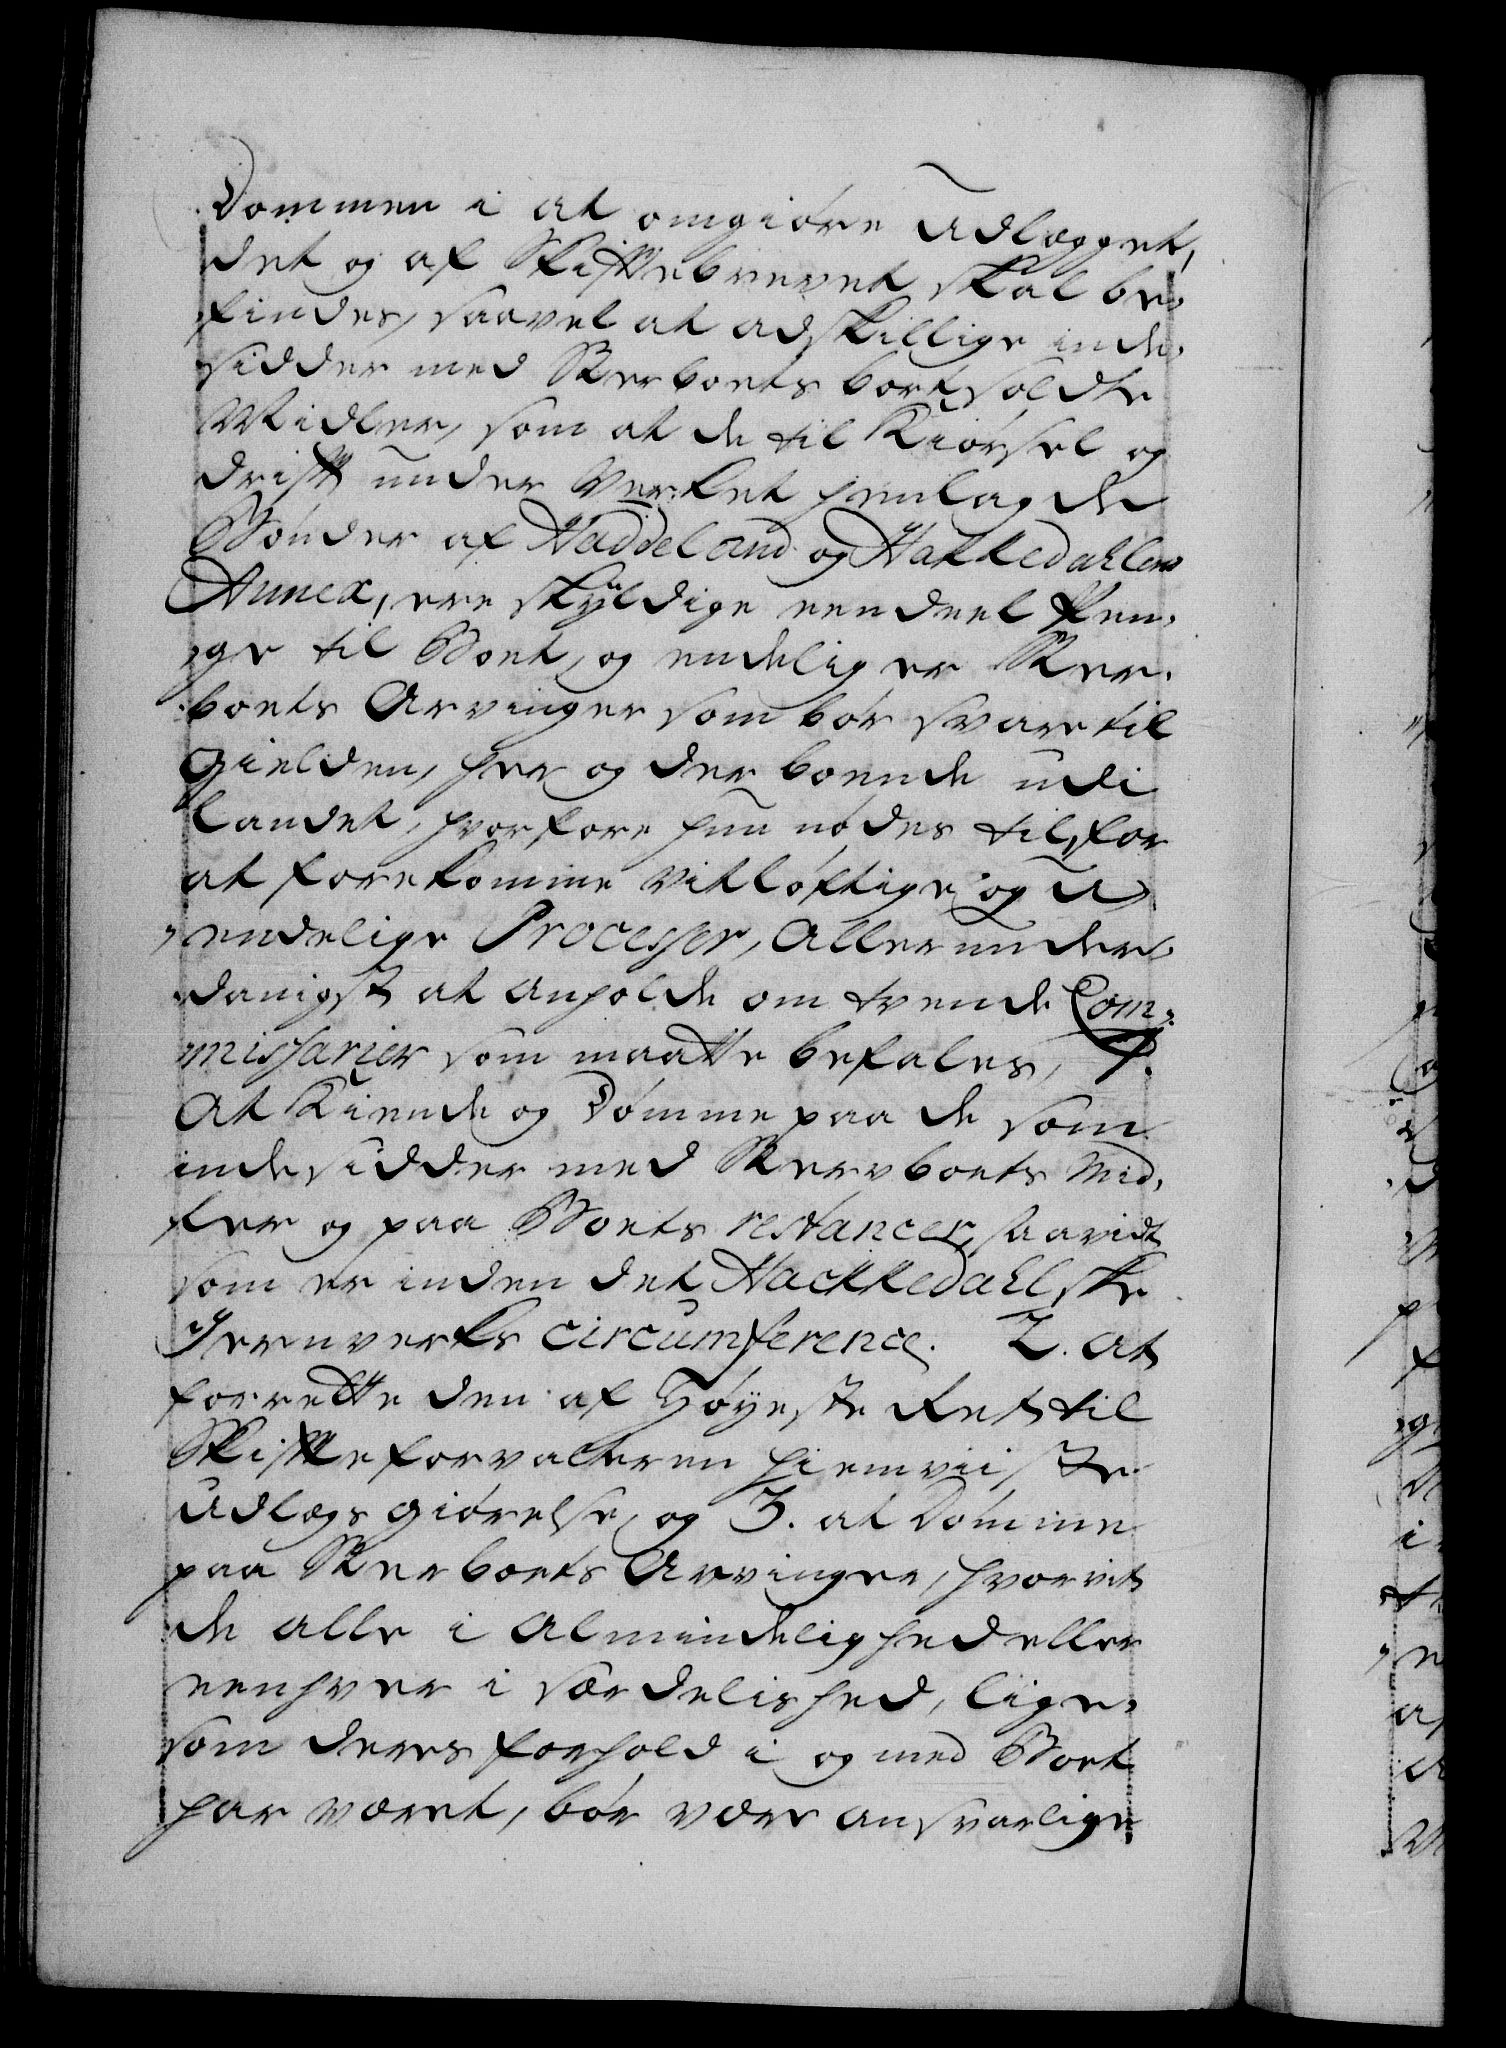 Dommen i at omgiøre Udlægget,
det og af Skiftebrevet skal be,
findes, saavel at adskillige inde,
sidder med Sterboets bortsoldte
Midler, som at de til Kiørsel og
drift under Verket henlagde
Bønder af Haddeland og Hakkedahlens
Annex, ere skyldige eendeel Pen,
ge til Boet, og endelig er Ster,
boets Arvinger som bør svare til
Gielden, her og der boende udi
Landet, hvorfore hun nødes til, for
at forekomme vitløftige og U,
endelige Processer, allerunder,
danigst at anholde om tvende Com,
missarier som maatte befales, 1.
At Kiende og Dømme paa de som
indesidder med Stervboets Mid,
ler og paa Boets restancer, saavidt
som er inden det Hackkedahlske
Jernverks circumference. 2. at
forrette den af Høyeste Ret til
Skifteforvalteren hiemviiste
Udlægs giørelse, og 3. at Dømme
paa Sterboets Arvinger, hvorvit
de alle i Almindelighed eller
eenhver i særdelished, lige,
som deres forhold i og med Boet
har været, bør være ansvarlige